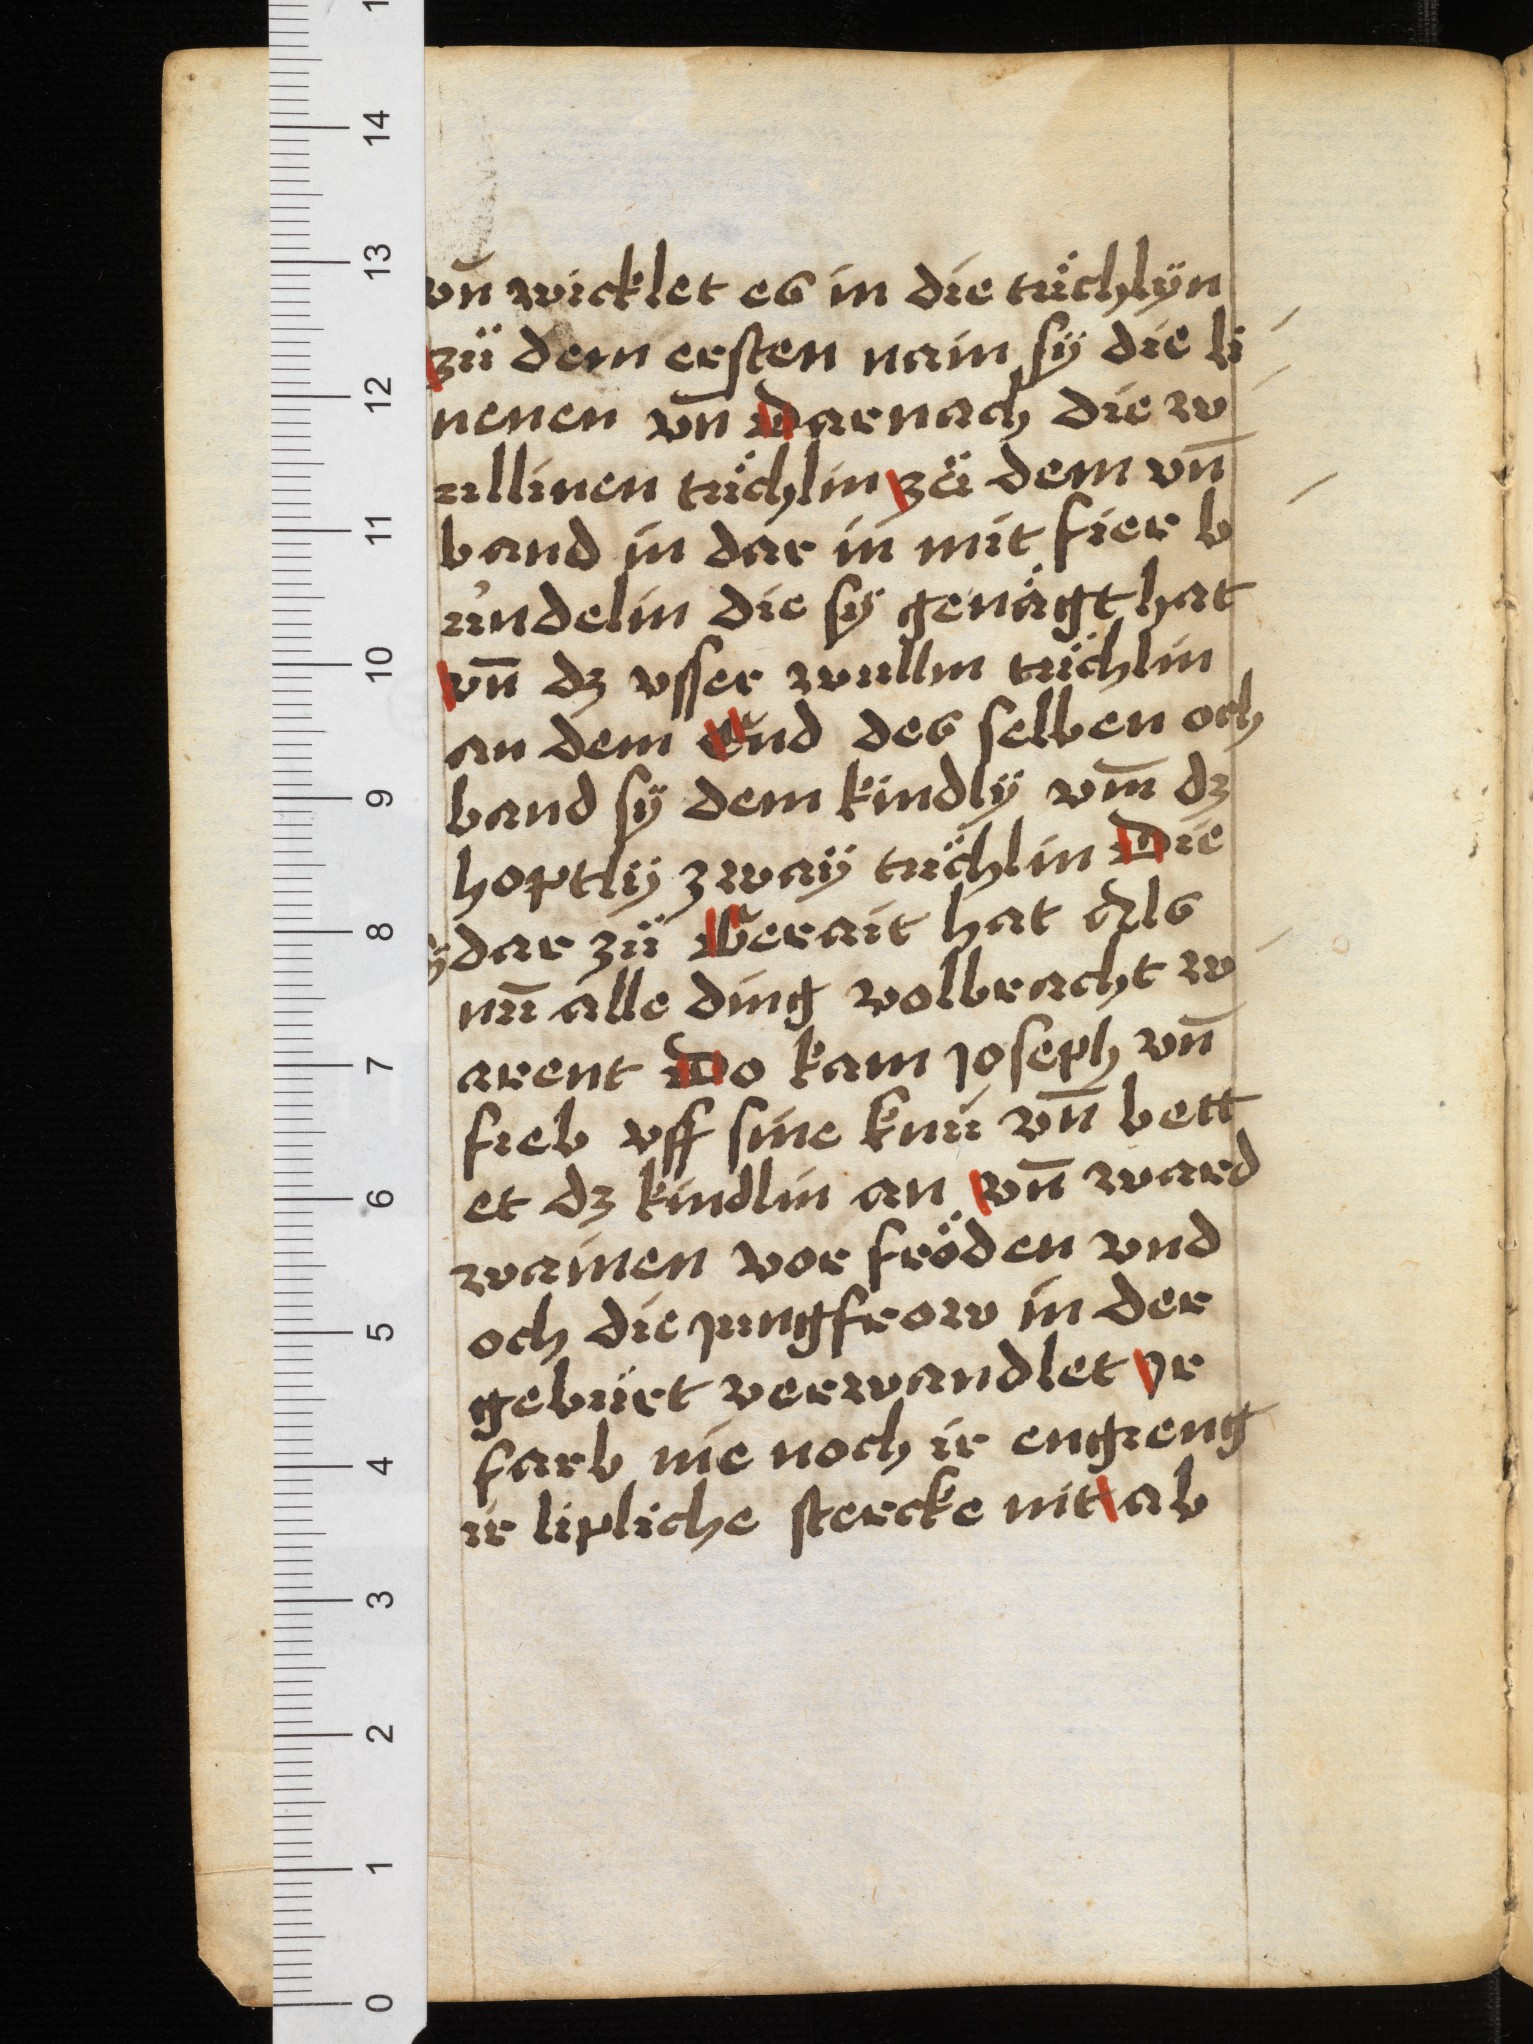 vn̄ wicklet es in die tüchlÿn
zü dem ersten nam sÿ die li
nenen vn̄ Darnach die w
ullinen tüchlin zü dem vn̄
band in dar in mit fier b
úndelin die sÿ genägt hat
vn̄ dz vsser wullin tüchlin
an dem End des selben och
band sÿ dem kindlÿ vm̄ dz
hoptlÿ zwaÿ tüchlin Die
ÿ dar zü Berait hat Als
nü alle ding volbracht w
arent Do kam joseph vn̄
fieb vff sine knü vn̄ bett
et dz kindlin an vn̄ ward
wainen vor fröden vnd
och die jungfrow in der
gebürt verwandlet Ir
farb nie noch ir engieng
ir lipliche stercke nit ab
14
13
12
11
10
9
8
7
6
5
4
3
2
1
0